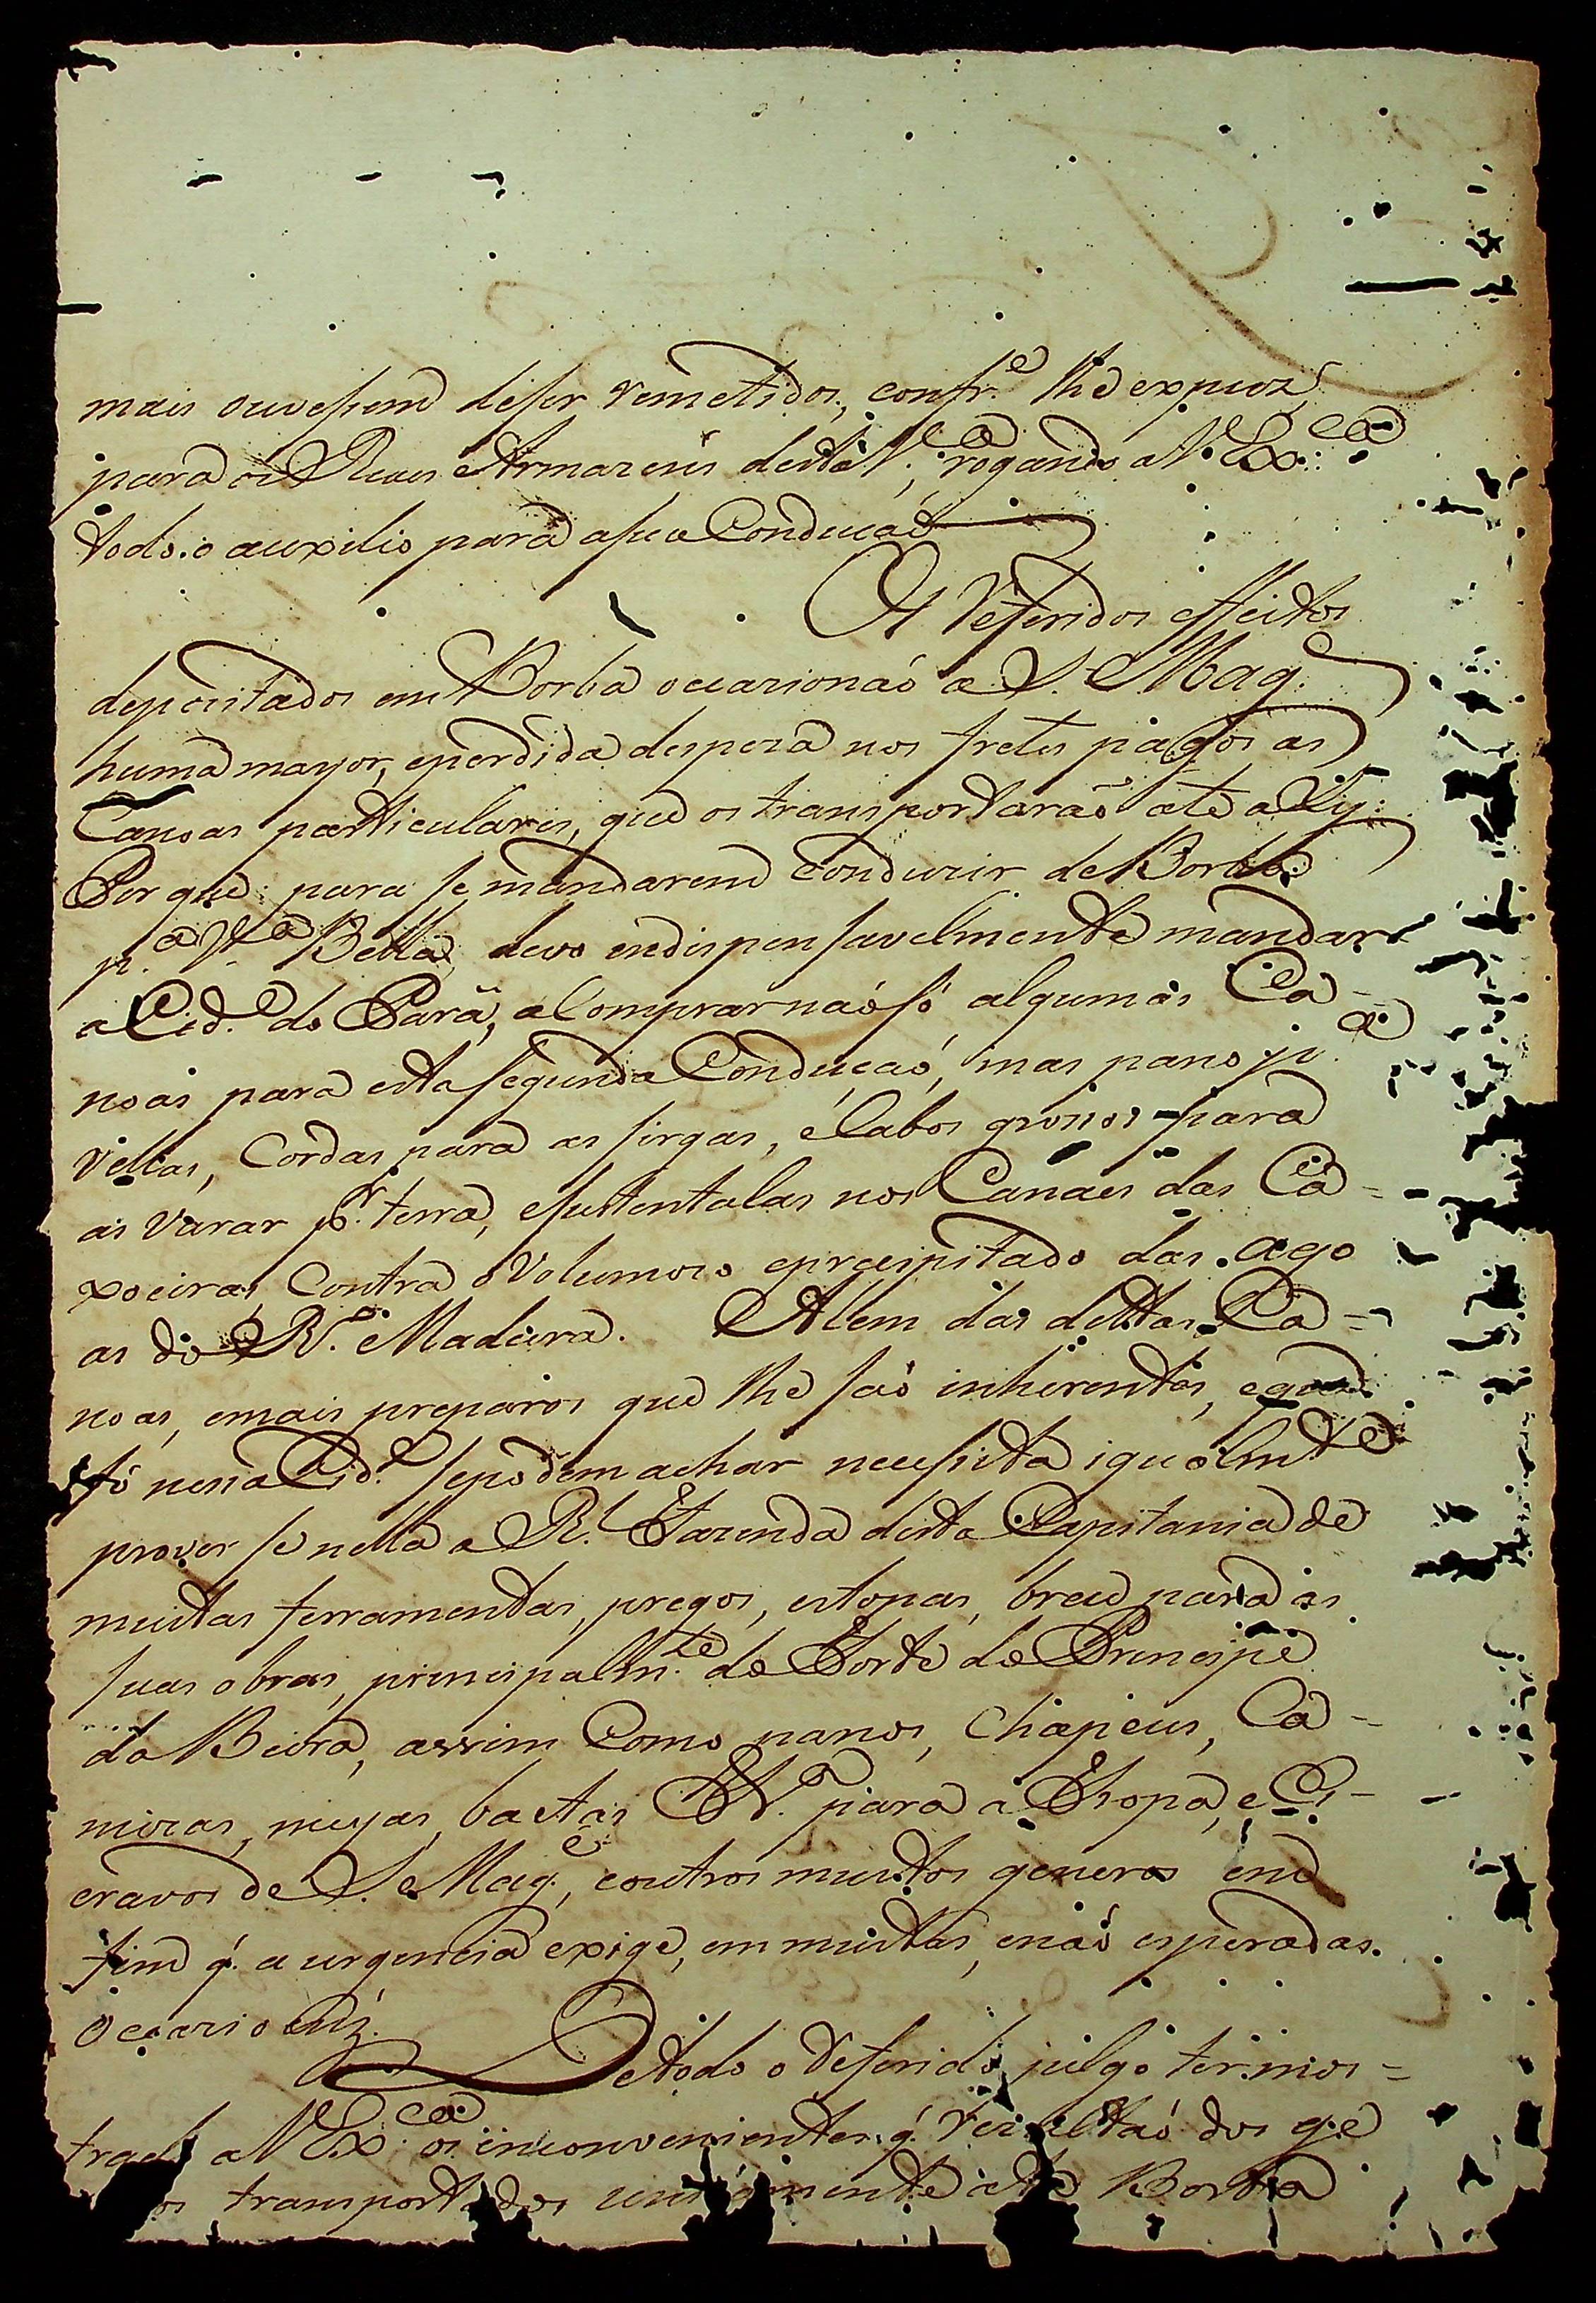 mais ouvessem deser remetidos, confr.e lhe expuz,
para os Reaes Armazens desta V.a, rogando a V. Ex.ca
todo o auxilio para a sua Conducaó
Os referidos effeitos
depozitados em Borba ocazionaó a S. Mag.e
huma mayor, eperdida despeza nos fretes pagos as
Canoas particulares, que os transportarão até aly:
Por que para se mandarem conduzir de Borba
p.a V.a Bella, devo endispensavelmente mandar
a Cid.e do Pará, a Comprar naó só algumas Ca-
noas para esta segunda Conduçaó, mas pano p.a
vellas, Cordas para as sirgas, e Cabos grossos para
as varar p.r terra, esustentalas nos Canaes das Ca-
xoeiras, Contra o Volumozo eprecipitado das ago
as do R.o Madeira. Alem das dittas Ca-
noas, emais preparos que lhe saó inherentes, eque
só nessa Cid.e sepodem achar necessita igualmte
prover se nella a R.l Fazenda desta Capitania de
muitas ferramentas, pregos, estopas, breu para as
suas obras, principalm.te do Forte do Principe
da Beira, assim Como panos, Chapeus, Ca-
mizas, meyas, baetas &.a para a Tropa, e Es-
cravos de S. Mag.e, eoutros muitos generos em
fim q. a urgencia exige, em muitas, enaó esperadas
Ocazioens.
De todo o referido, julgo ter mos-
trado a V Ex.ca os inconvenientes q. rezultaó dos ge
os transportados unicamente até Borba